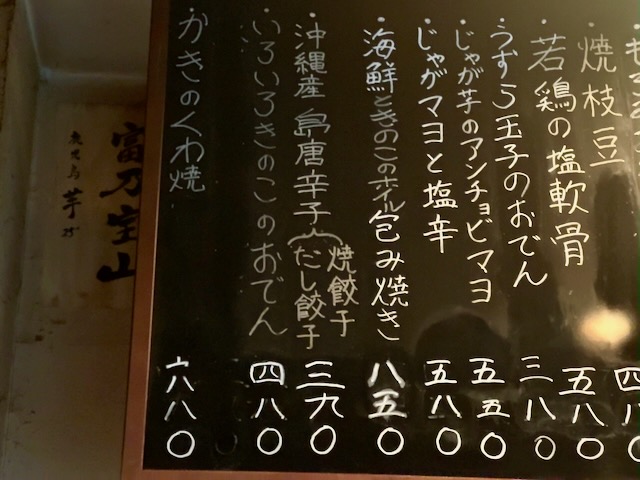 ・焼枝豆 四八〇
・若鶏の塩軟骨 五八〇
・うずら玉子のおでん 三八〇
・じゃが芋のアンチョビマヨ 五五〇
・じゃがマヨと塩辛 五八〇
・海鮮ときのこのホイル包み焼き 八五〇
・沖縄産島唐辛子入(焼餃子 だし餃子 三九〇
・いろいろきのこのおでん 四八〇
・かきのくわ焼 六八〇
富乃宝山
鹿児島 芋